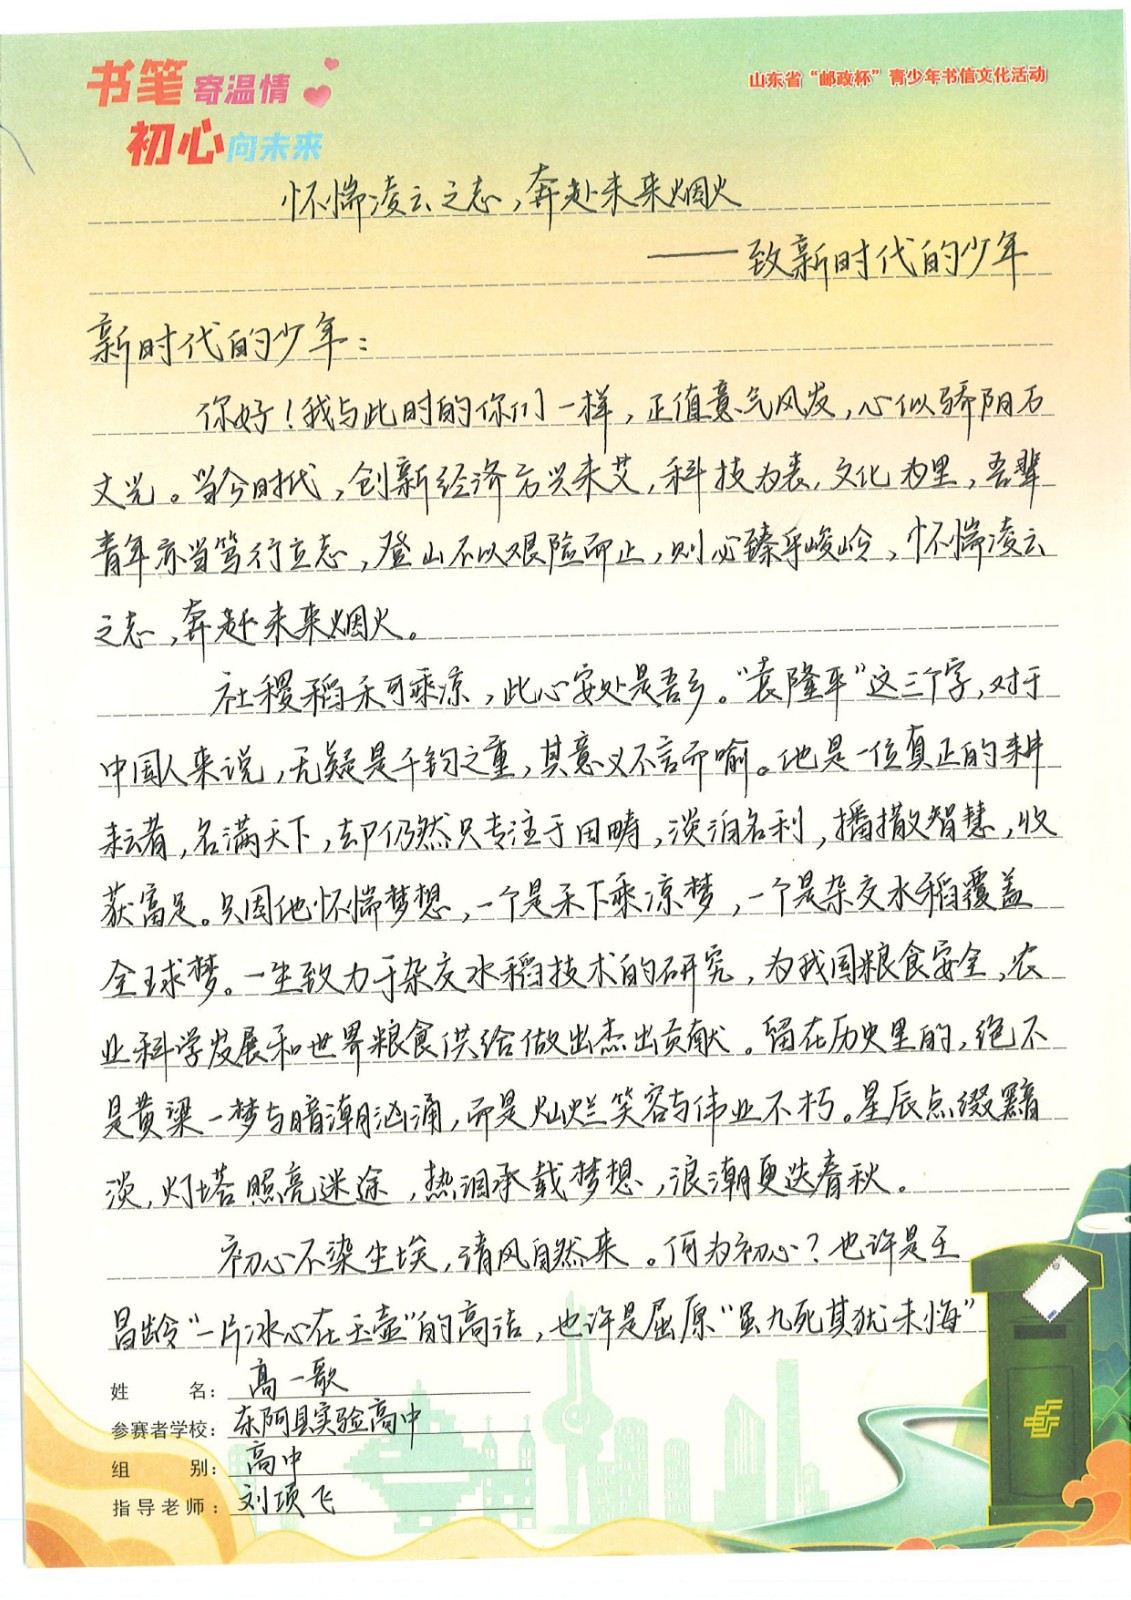 书笔寄温情
初心向未来
山东省“邮政杯”青少年书信文化活动
怀惴凌云之志，奔赴未来烟火
——致新时代的少年
新时代的少年：
你好！我与此时的你们一样，正值意气风发，心似骄阳万
丈光。当今时代，创新经济方兴未艾，科技为表，文化为里，吾辈
青年亦当笃行立志，登山不以艰险而止，则必臻乎峻岭，怀惴凌云
之志，奔赴未来烟火。
社稷稻禾可乘凉，此心安处是吾乡。“袁隆平”这三个字，对于
中国人来说，无疑是千钧之重，其意义不言而喻。他是一位真正的耕
耘者，名满天下，却仍然只专注于田畴，淡泊名利，播撒智慧，收
获富足。只因他怀惴梦想，一个是禾下乘凉梦，一个是杂交水稻覆盖
全球梦。一生致力于杂交水稻技术的研究，为我国粮食安全，农
业科学发展和世界粮食供给做出杰出贡献。留在历史里的，绝不
是黄粱一梦与暗潮汹涌，而是灿烂笑容与伟业不朽。星辰点缀黯
淡，灯塔照亮迷途，热泪承载梦想，浪潮更迭春秋。
初心不染尘埃，清风自然来。何为初心？也许是王
昌龄“一片冰心在玉壶”的高洁，也许是屈原“虽九死其犹未悔”
姓名：高一歌
参赛者学校：东阿县实验高中
组别：高中
指导老师：刘项飞